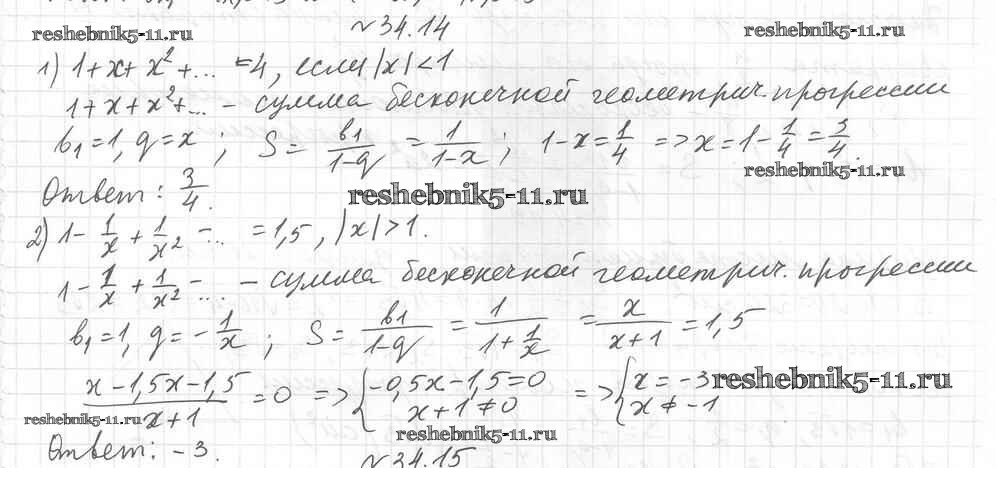 №34.14
reshebnik5-11.ru
reshebnik5-11.ru
1) 1+x+x²+... =4, если |x|<1
1+x+x²+... - сумма бесконечной геометрич. прогрессии
b₁=1, q=x; S= b₁/(1-q) = 1/(1-x); 1-x=1/4 => x=1-1/4=3/4.
reshebnik5-11.ru
Ответ: 3/4.
reshebnik5-11.ru
2) 1- 1/x + 1/x² -... =1,5, |x|>1.
1- 1/x + 1/x² -... - сумма бесконечной геометрич. прогрессии
b₁=1, q=-1/x; S= b₁/(1-q) = 1/(1+1/x) = x/(x+1) =1,5
(x-1,5x-1,5)/(x+1) =0 => {-0,5x-1,5=0 x+1≠0 => {x=-3 x≠-1
reshebnik5-11.ru
reshebnik5-11.ru
reshebnik5-11.ru
Ответ: -3.
№34.15